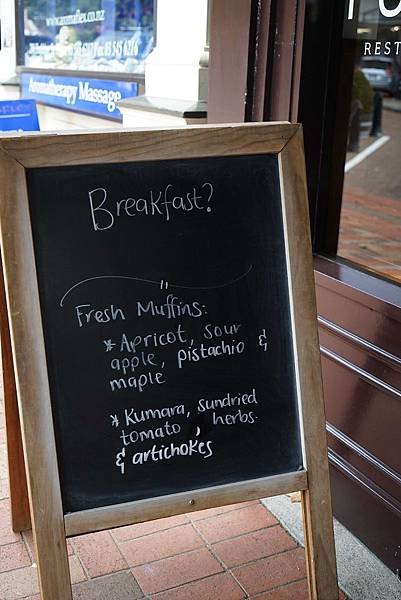 www.aromaflex.co.nz
Aromatherapy Massage
REST
Breakfast?
Fresh Muffins:
* Apricot, sour
apple, pistachio &
maple
* Kumara, sundried
tomato, herbs.
& artichokes